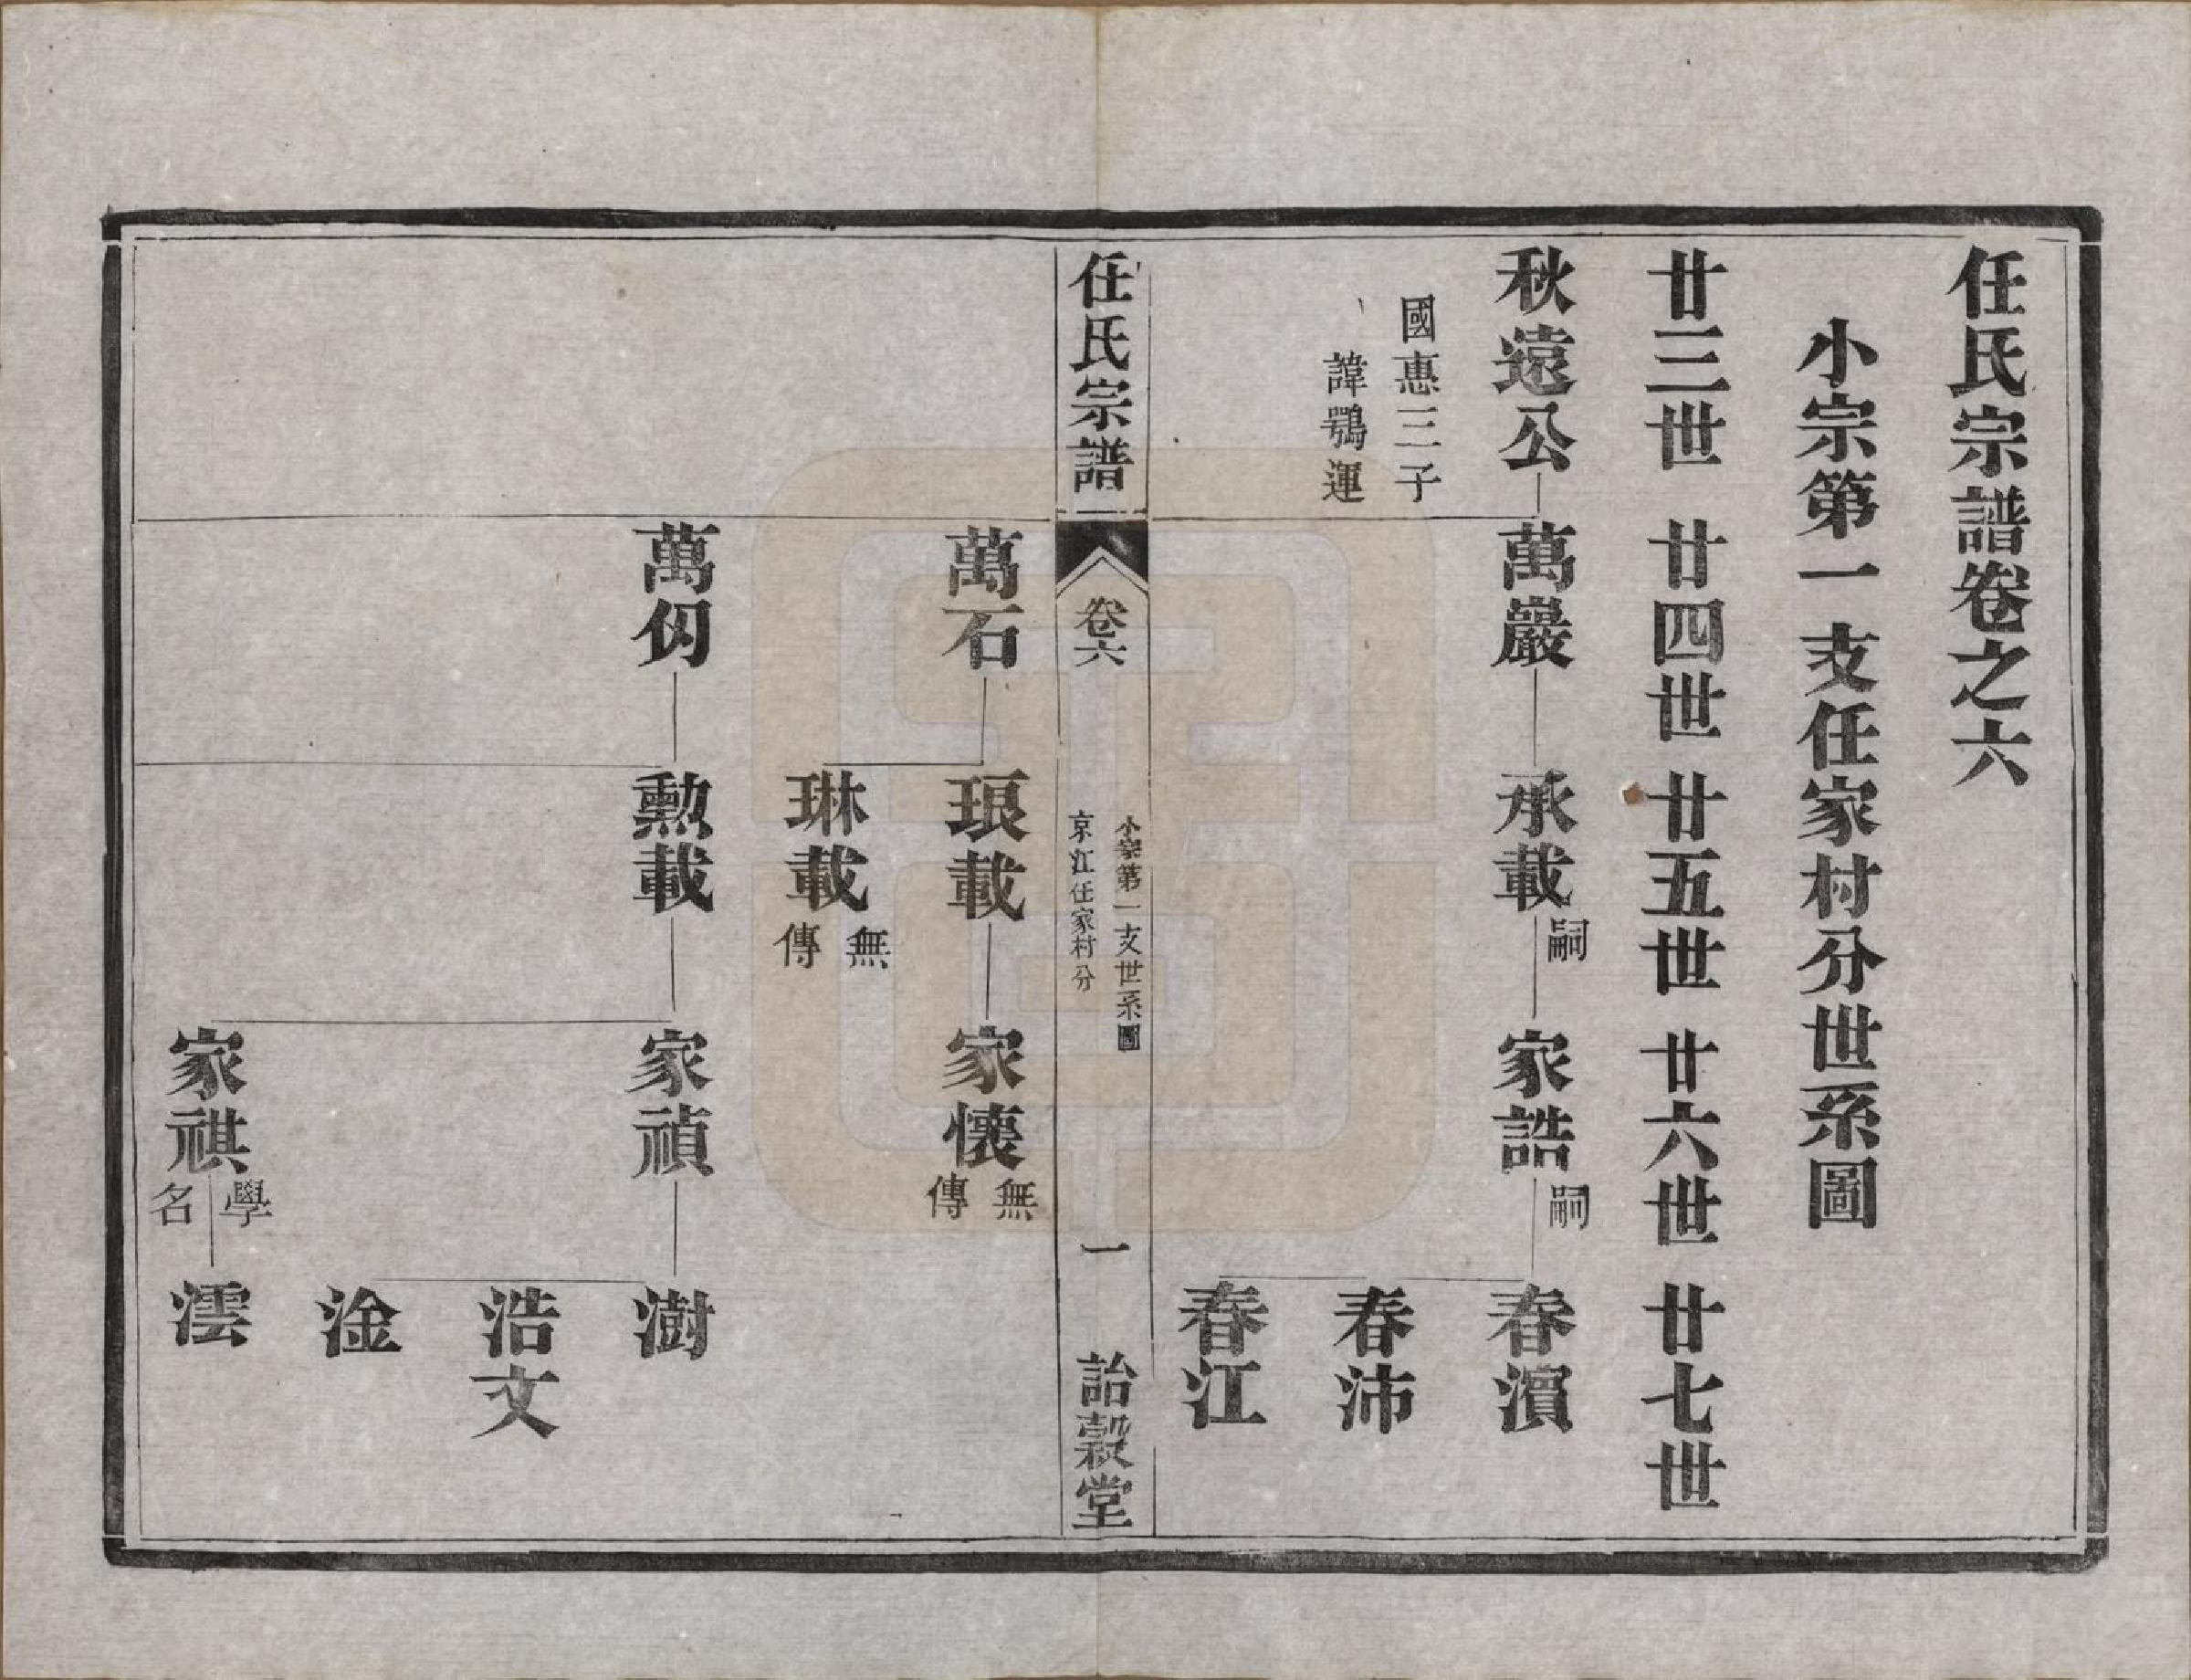 任氏宗譜卷之六
小宗第一支任家村分世系圖
廿三世 廿四世 廿五世 廿六世 廿七世
秋遠公 萬巖 承載嗣 家誥嗣 春濵
國惠三子
諱鶚運
春沛
春江
任氏宗譜 卷六 小宗第一支世系圖 京江任家村分 一 詒穀堂
萬石 琅載 家懷無傳
琳載無傳
萬仭 勳載 家禎 澍
浩文
淦
家祺學名 澐